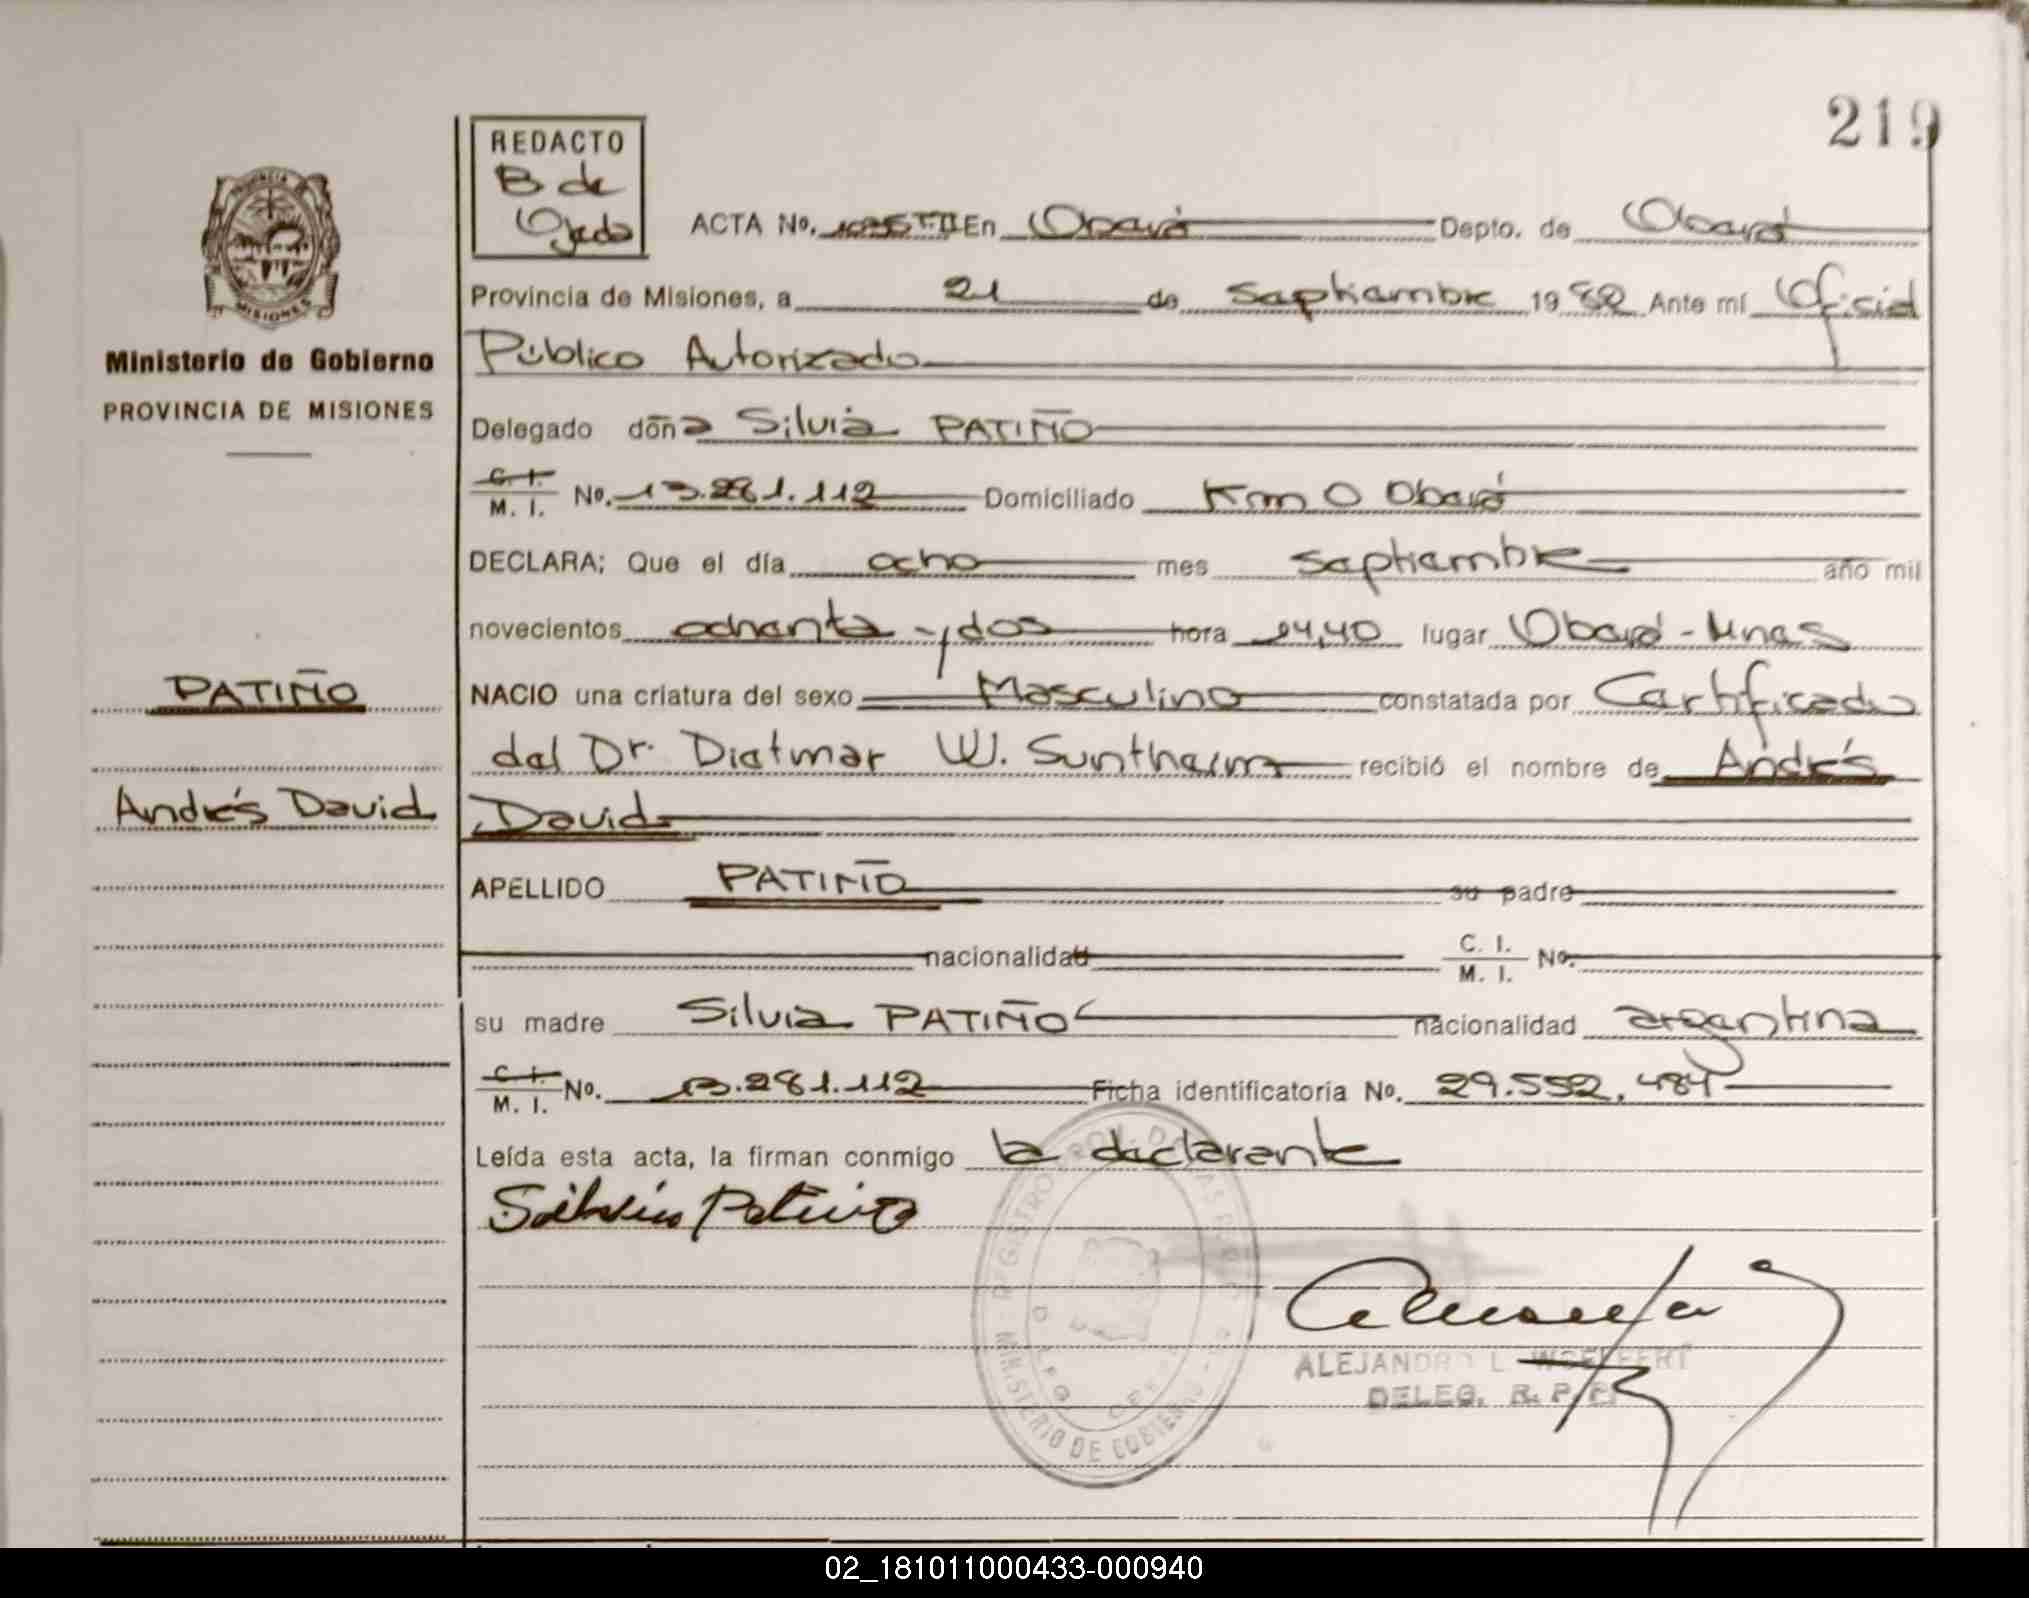 219
REDACTO
B de
Ojeda
ACTA No. En Oberá Depto. de Oberá
Provincia de Misiones, a 21 de Septiembre 1982 Ante mí Oficial
Público Autorizado
Ministerio de Gobierno
PROVINCIA DE MISIONES
Delegado doña Silvia PATIÑO
C. I.
M. I. No. 13.281.112 Domiciliado Km 0 Oberá
DECLARA; Que el día ocho mes septiembre año mil
novecientos ochenta y dos hora 14,40 lugar Oberá - Mnes
NACIO una criatura del sexo Masculino constatada por Certificado
del Dr. Dietmar W. Suntheim recibió el nombre de Andrés
David
PATIÑO
Andrés David
APELLIDO PATIÑO su padre
nacionalidad C. I.
M. I. No.
su madre Silvia PATIÑO nacionalidad argentina
C. I.
M. I. No. 13.281.112 Ficha identificatoria No. 29.552.484
Leída esta acta, la firman conmigo la declarante
Silvia Patiño
ALEJANDRO L. WOELFERT
DELEG. R. P. P.
MINISTERIO DE GOBIERNO
02_181011000433-000940